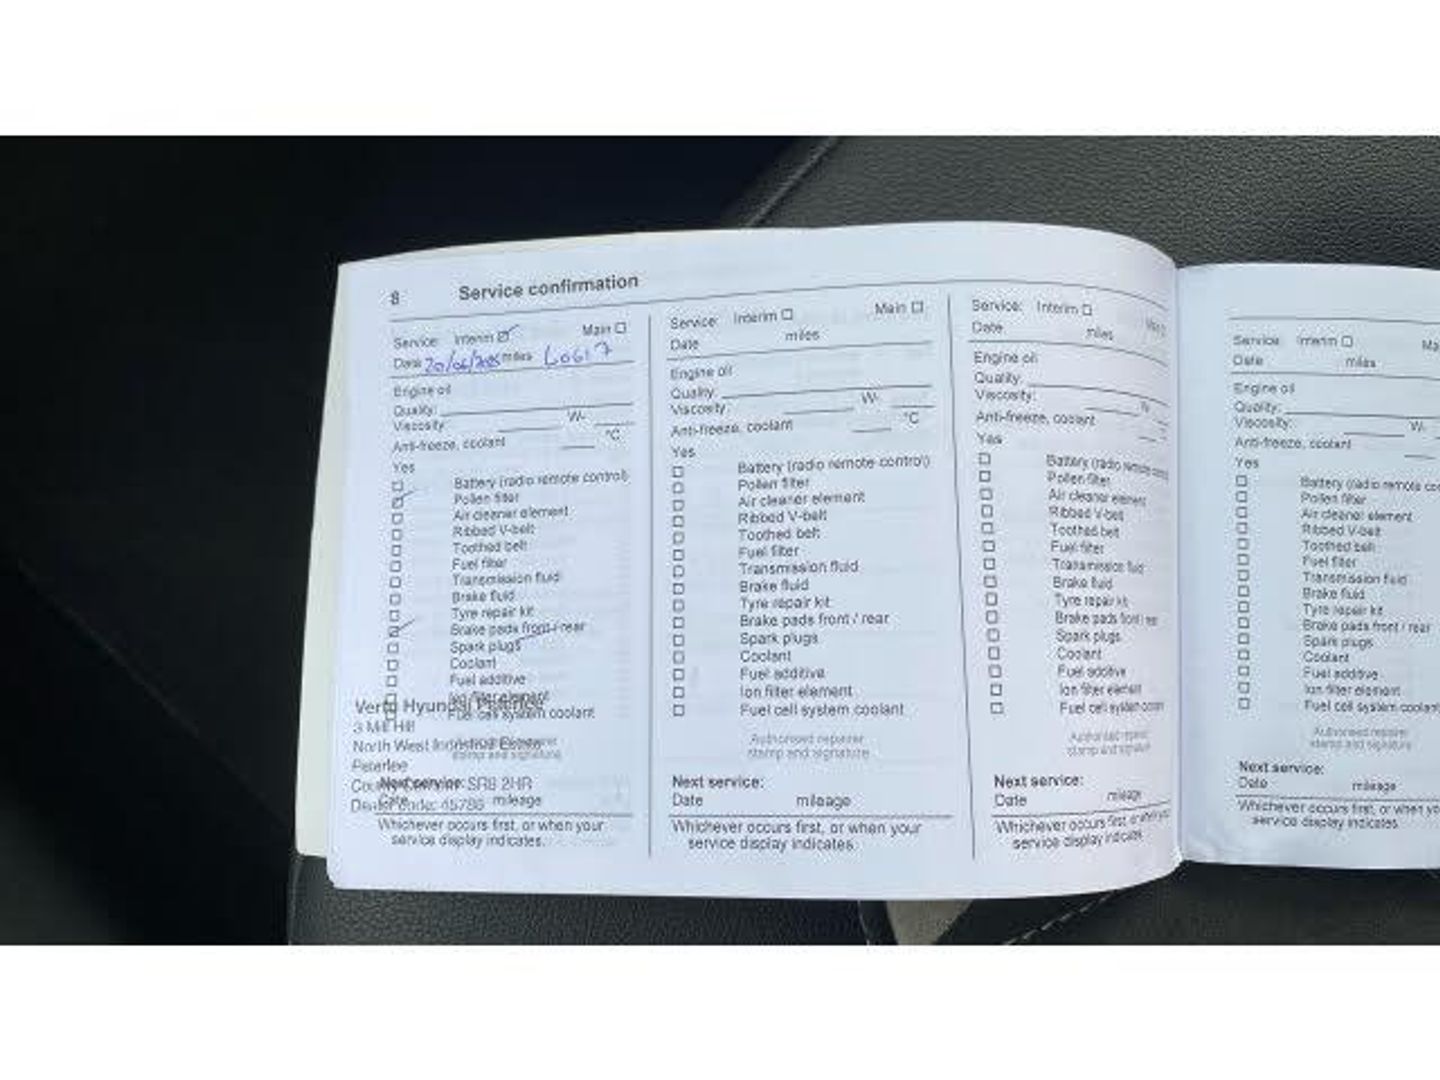 8 Service confirmation
Service: Interim ☑ Main ☐
Date 20/06/2025 miles 60617
Engine oil
Quality:
Viscosity: W-
Anti-freeze, coolant °C
Yes
☐ Battery (radio remote control)
☑ Pollen filter
☐ Air cleaner element
☐ Ribbed V-belt
☐ Toothed belt
☐ Fuel filter
☐ Transmission fluid
☐ Brake fluid
☐ Tyre repair kit
☑ Brake pads front / rear
☐ Spark plugs
☐ Coolant
☐ Fuel additive
☐ Ion filter element
☐ Fuel cell system coolant
Vertu Hyundai Peterlee
3 Mill Hill
North West Industrial Estate
Peterlee
County Durham SR8 2HR
Dealer Code: 45786
stamp and signature
Next service:
Date mileage
Whichever occurs first, or when your
service display indicates.
Service: Interim ☐ Main ☐
Date miles
Engine oil
Quality:
Viscosity: W-
Anti-freeze, coolant °C
Yes
☐ Battery (radio remote control)
☐ Pollen filter
☐ Air cleaner element
☐ Ribbed V-belt
☐ Toothed belt
☐ Fuel filter
☐ Transmission fluid
☐ Brake fluid
☐ Tyre repair kit
☐ Brake pads front / rear
☐ Spark plugs
☐ Coolant
☐ Fuel additive
☐ Ion filter element
☐ Fuel cell system coolant
Authorised repairer
stamp and signature
Next service:
Date mileage
Whichever occurs first, or when your
service display indicates.
Service: Interim ☐
Date miles
Engine oil
Quality:
Viscosity:
Anti-freeze, coolant
Yes
☐ Battery (radio remote
☐ Pollen filter
☐ Air cleaner element
☐ Ribbed V-belt
☐ Toothed belt
☐ Fuel filter
☐ Transmission fluid
☐ Brake fluid
☐ Tyre repair kit
☐ Brake pads front / rear
☐ Spark plugs
☐ Coolant
☐ Fuel additive
☐ Ion filter element
☐ Fuel cell system coolant
stamp and signature
Next service:
Date mileage
Whichever occurs first, or when you
service display indicates.
Service: Interim ☐ Ma
Date miles
Engine oil
Quality:
Viscosity: W-
Anti-freeze, coolant
Yes
☐ Battery (radio remote co
☐ Pollen filter
☐ Air cleaner element
☐ Ribbed V-belt
☐ Toothed belt
☐ Fuel filter
☐ Transmission fluid
☐ Brake fluid
☐ Tyre repair kit
☐ Brake pads front / rear
☐ Spark plugs
☐ Coolant
☐ Fuel additive
☐ Ion filter element
☐ Fuel cell system coolant
Authorised repairer
stamp and signature
Next service:
Date mileage
Whichever occurs first, or when yo
service display indicates.